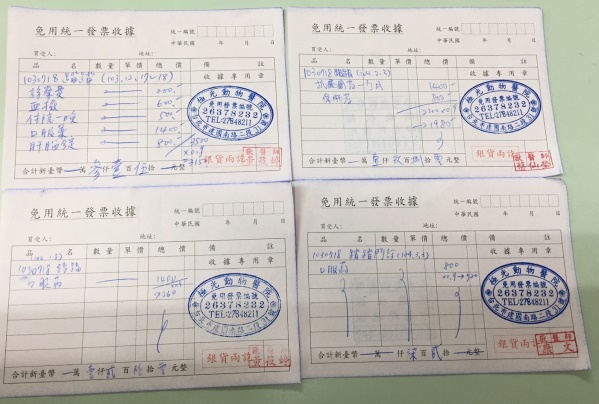 免用統一發票收據
統一編號
中華民國 年 月 日
買受人: 地址:
品名 數量 單價 總價 備註
1030918 (103.12.17~18)
收據專用章
診察費 200.-
血檢 600.-
住院一晚 500.-
口服藥 1400.-
肝腦錠 800.-
3500
x0.9
3150
極光動物醫院
免用發票編號
26378232
TEL:27848211
台北市建國南路二段31號
銀貨兩訖
合計新臺幣 萬 參仟 壹百 伍拾 元整
免用統一發票收據
統一編號
中華民國 年 月 日
買受人: 地址:
品名 數量 單價 總價 備註
1030918 (104.2.3)
收據專用章
1400
800
2200x0.9
→1980
極光動物醫院
免用發票編號
26378232
TEL:27848211
台北市建國南路二段31號
銀貨兩訖
合計新臺幣 萬 壹仟 玖百 捌拾 元整
免用統一發票收據
統一編號
中華民國 年 月 日
買受人: 地址:
品名 數量 單價 總價 備註
1030918
收據專用章
口服藥 1400
x0.9
1260
極光動物醫院
免用發票編號
26378232
TEL:27848211
台北市建國南路二段31號
銀貨兩訖
合計新臺幣 萬 壹仟 貳百 陸拾 元整
免用統一發票收據
統一編號
中華民國 年 月 日
買受人: 地址:
品名 數量 單價 總價 備註
1030918 門診(104.3.3)
收據專用章
口服藥 800
x0.9→720
極光動物醫院
免用發票編號
26378232
TEL:27848211
台北市建國南路二段31號
銀貨兩訖
合計新臺幣 萬 仟 柒百 貳拾 元整